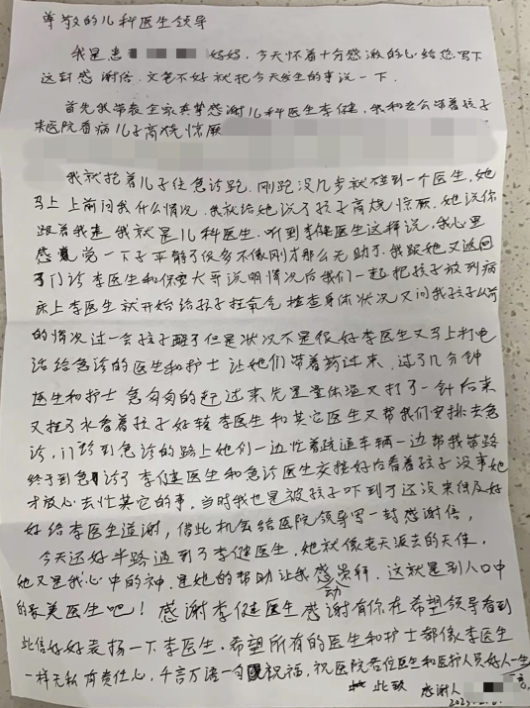 尊敬的儿科医生领导
我是患 好好，今天怀着十分感激的心给您写下
这封感谢信，文笔不好就把今天发生的事说一下．
首先我带表全家真挚感谢儿科医生李健，我和老公带着孩子
来医院看病儿子高烧惊厥
我就抱着儿子往急诊跑．刚跑没几步就碰到一个医生，她
马上上前问我什么情况．我就给她说了孩子高烧惊厥．她说你
跟着我走我就是儿科医生．听到李健医生这样说，我心里
感觉一下子平静了很多不像刚才那么无助了．我跟她又返回
了门诊李医生和保安大哥说明情况后我们一起把孩子放到病
床上李医生就开始给孩子拉氧气检查身体状况又问我孩子以前
的情况过一会孩子醒了但是状况不是很好李医生又马上打电
话给急诊的医生和护士让她们带着药过来．过了几分钟
医生和护士急匆匆的赶过来先是量体温又打了一针后来
又挂了水看着孩子好转李医生和其它医生又帮我们安排去急
诊，门诊到急诊的路上她们一边忙着疏通车辆一边帮我带路
终于到急诊了李健医生和急诊医生交接好后看着孩子没事她
才放心去忙其它的事．当时我也是被孩子吓到了还没来得及好
好给李医生道谢，借此机会给医院领导写一封感谢信，
今天还好半路遇到了李健医生．她就像老天派去的天使．
她又是我心中的神．是她的帮助让我感动崇拜．这就是别人口中
的最美医生吧！感谢李健医生感谢有你在希望领导看到
此信好好表扬一下李医生．希望所有的医生和护士都像李医生
一样无私有责任心，千言万语一句祝福．祝医院各位医生和医护人员好人一生
此致 感谢人